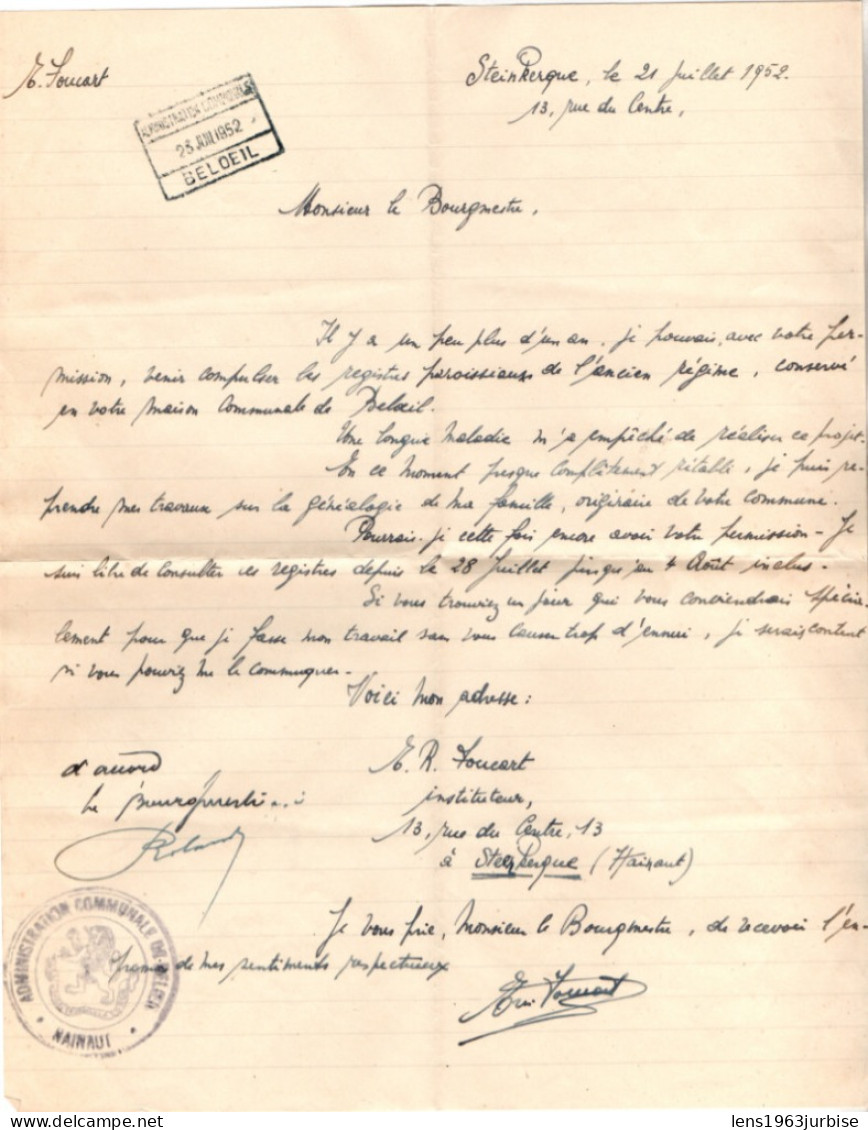 E. Foucart
Steinkerque, le 21 Juillet 1952.
13, rue du Centre,
ADMINISTRATION COMMUNALE
25 JUIL 1952
BELOEIL
Monsieur le Bourgmestre,
Il y a un peu plus d'un an, je pouvais, avec votre per-
mission, venir compulser les registres paroissiaux de l'ancien régime, conservé
en votre maison communale de Beloeil.
Une longue maladie m'a empêché de réaliser ce projet.
En ce moment presque complètement rétabli, je puis re-
prendre mes travaux sur la généalogie de ma famille, originaire de votre commune.
Pourrais-je cette fois encore avoir votre permission - Je
suis libre de consulter ces registres depuis le 28 Juillet jusqu'au 4 Août inclus -
Si vous trouviez un jour qui vous conviendrais spécia-
lement pour que je fasse mon travail sans vous causer trop d'ennui, je serais content
si vous pouviez me le communiquer -
Voici mon adresse :
d'accord
E. R. Foucart
Le Bourgmestre
instituteur,
13, rue du Centre, 13
à Steinkerque (Hainaut)
Je vous prie, Monsieur le Bourgmestre, de recevoir l'ex-
pression de mes sentiments respectueux
Foucart
ADMINISTRATION COMMUNALE DE BELOEIL
* HAINAUT *
lens1963jurbise